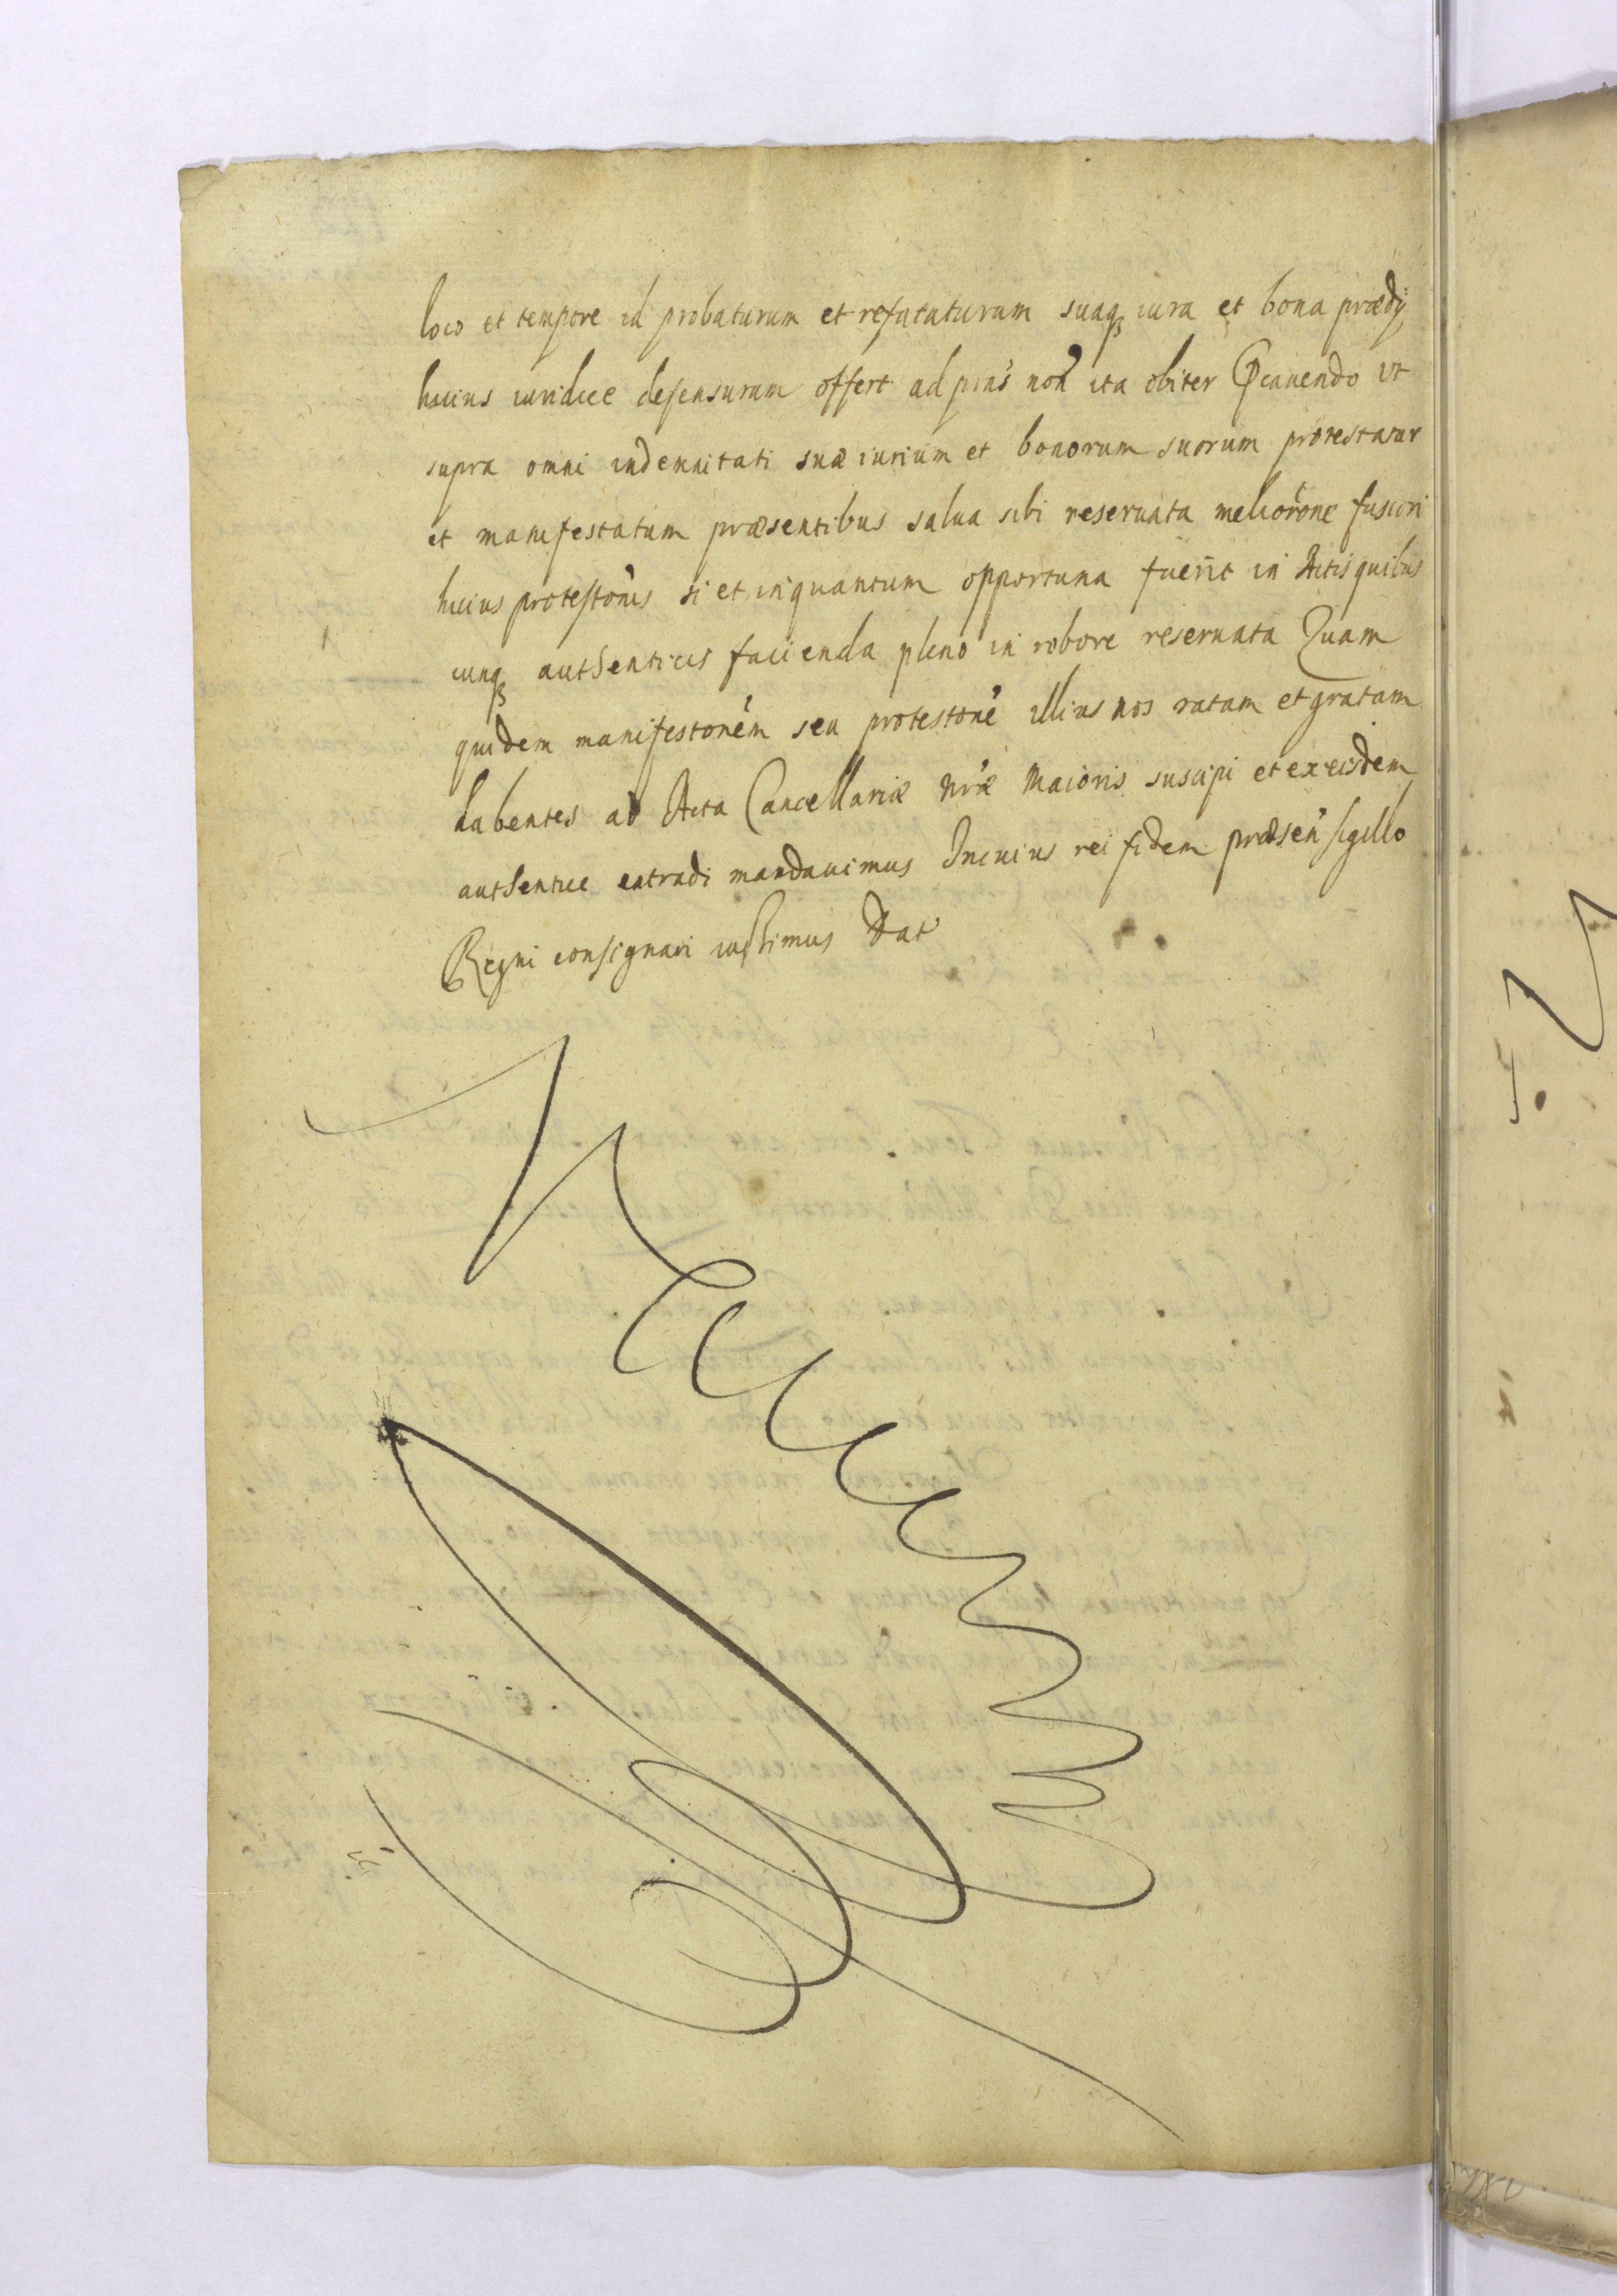 loco et tempore id probaturum et refutaturum suaqꝫ iura et bona prædij
huius iuridice defensurum offert ad pnś non ita obiter cauendo vt
supra omni indemnitati suæ iurium et bonorum suorum protestatur
et manifestatum præsentibus salua sibi reseruata meliorōne fusiori
huius protestōnis si et inquantum opportuna fuerit in Actis quibus
cunqꝫ authenticis facienda pleno in robore reseruata Quam
quidem manifestonem seu protestonē illius nos ratam et gratam
habentes ad Acta Cancellariæ nræ Maioris suscipi et ex eisdem
authentice extradi mandauimus In cuius rei fidem præsen sigillo
Regni consignari iussimus Dat